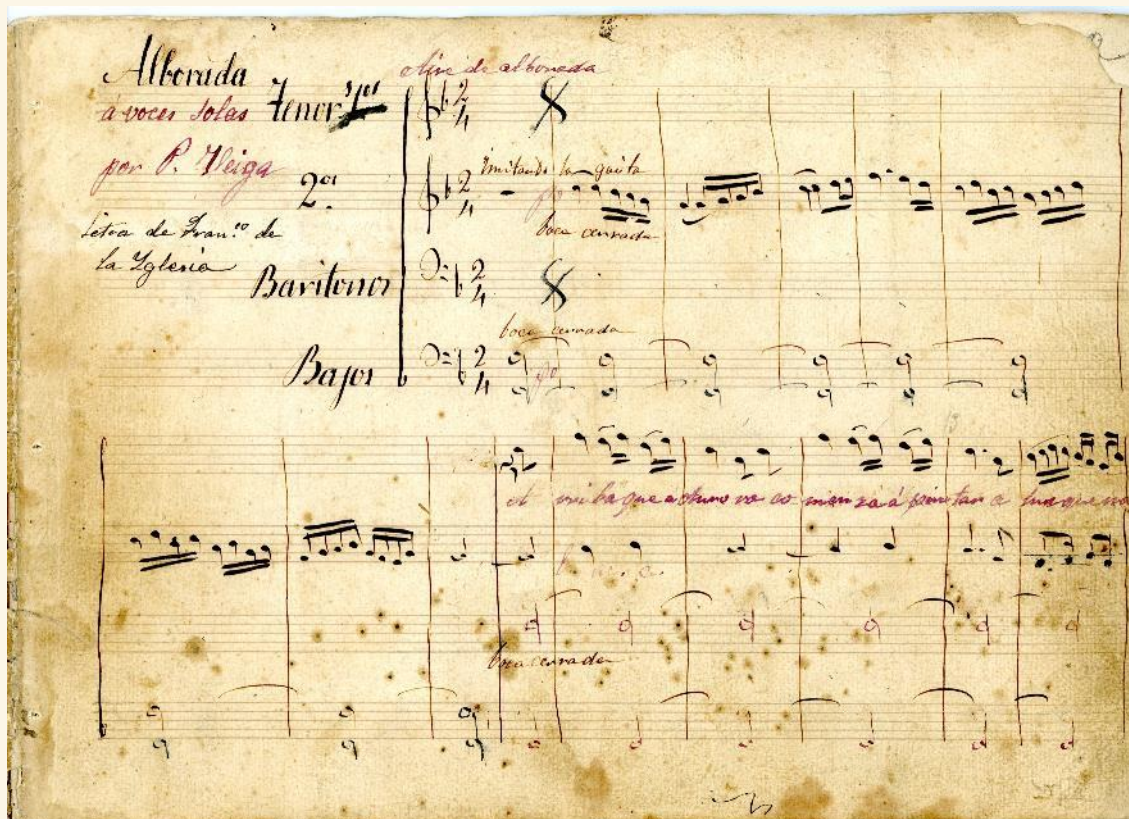 Alborada
á voces solas
por P. Veiga
Letra de Fran.co de
La Yglesia
Aire de alborada
Tenor 1os
2
4
Imitando la gaita
2os
2
4
po
boca cerrada
Baritonos
2
4
boca cerrada
Bajos
2
4
po
que a
no va co men za á pintar a
boca cerrada